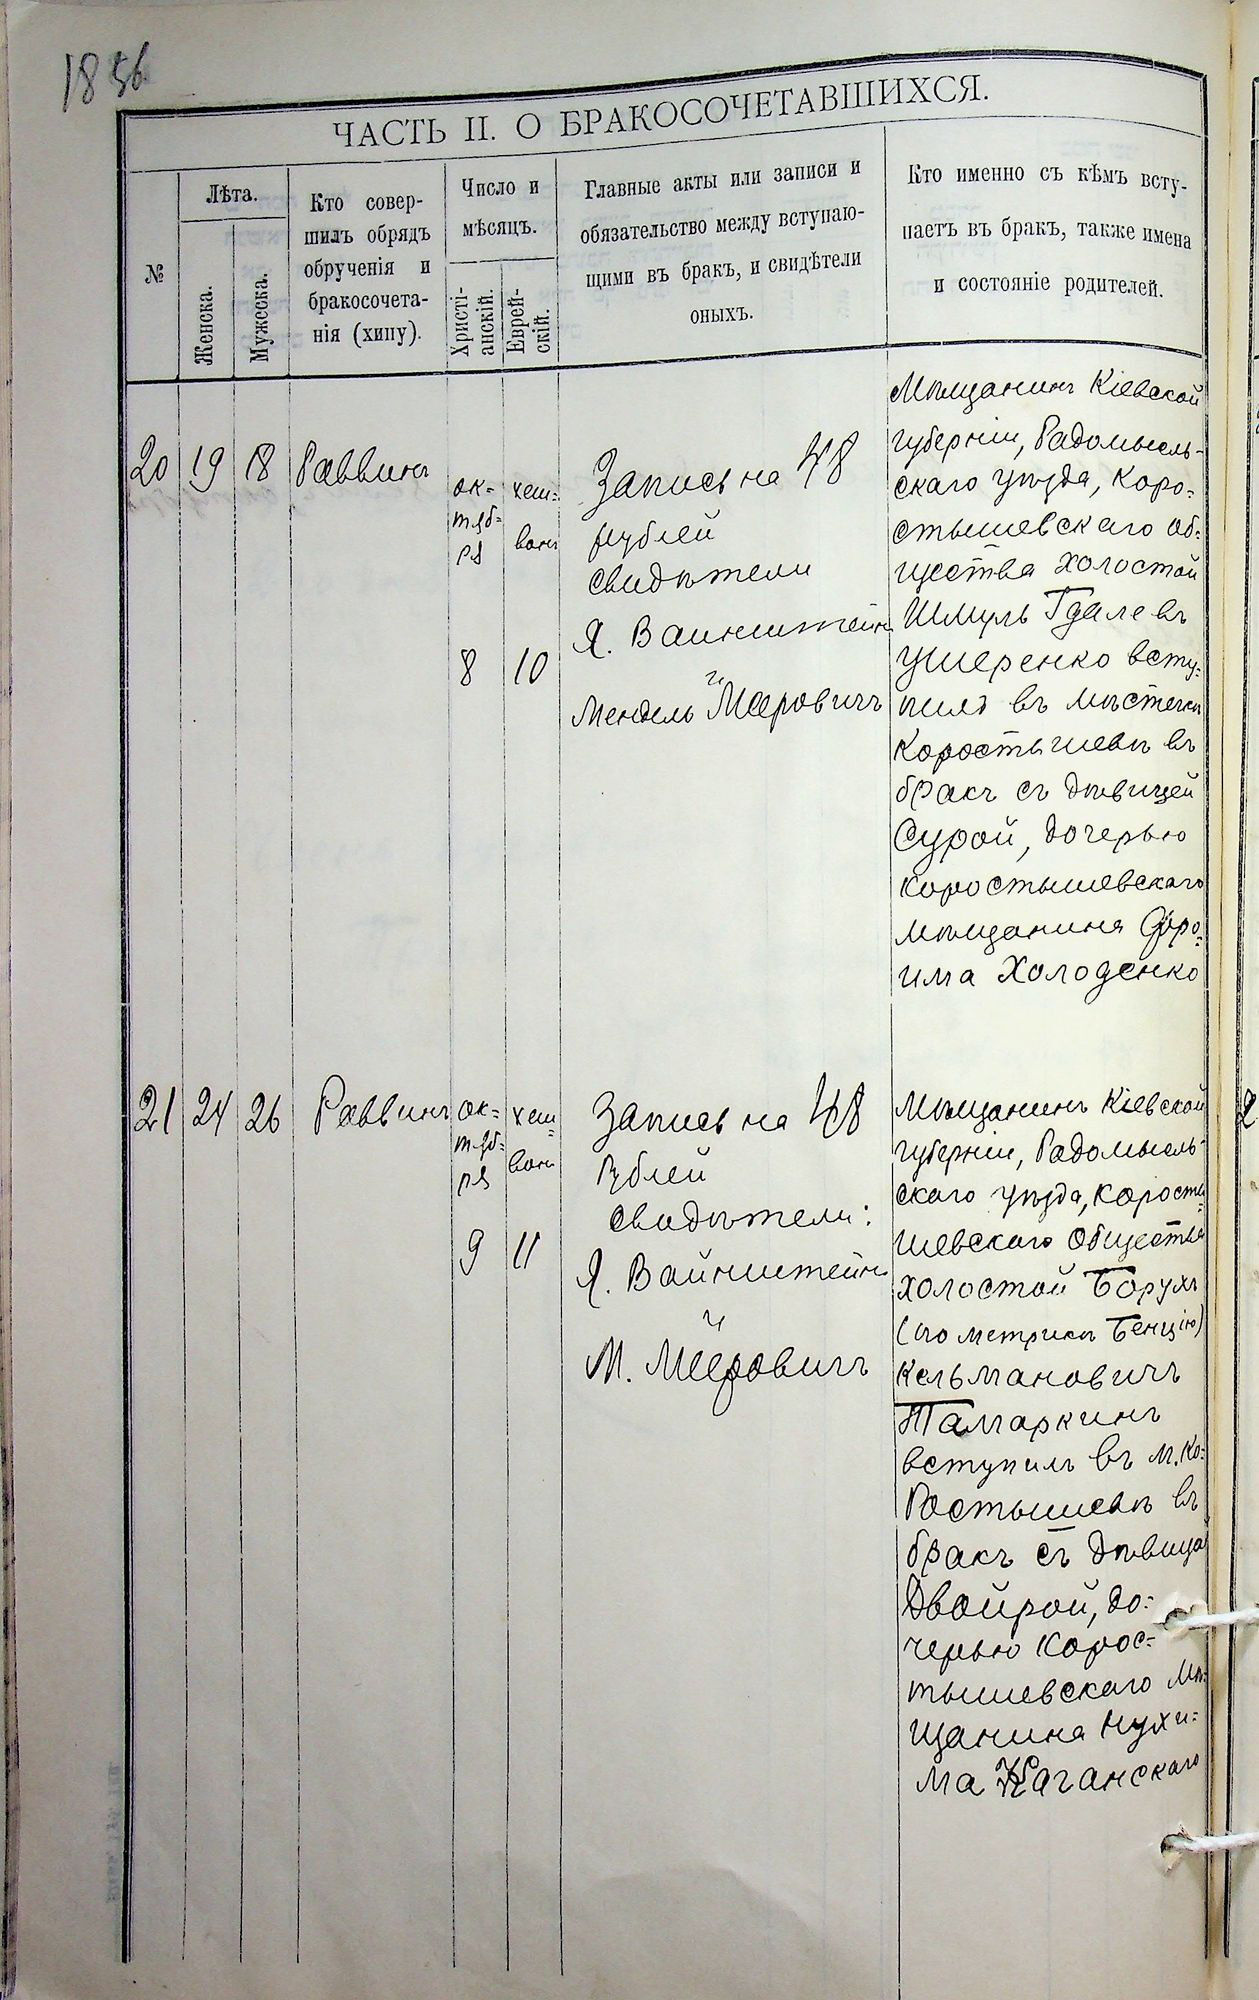 1856.
ЧАСТЬ II. О БРАКОСОЧЕТАВШИХСЯ.
№
Лѣта.
Женска.
Мужеска.
Кто совер-
шилъ обрядъ
обрученія и
бракосочета-
нія (хипу).
Число и
мѣсяцъ.
Христі-
анскій.
Еврей-
скій.
Главные акты или записи и
обязательство между вступаю-
щими въ бракъ, и свидѣтели
оныхъ.
Кто именно съ кѣмъ всту-
паетъ въ бракъ, также имена
и состояніе родителей.
20 19 18 Раввинъ
ок-
тяб-
ря
8
хеш-
ванъ
10
Запись на 48
рублей
свидѣтели
Я. Вайнштейнъ
и
Мендель Мееровичъ
Мѣщанинъ Кіевской
губерніи, Радомысль-
скаго уѣзда, Коро-
стышевскаго об-
щества холостой
Шмуль Гдалевъ
Ушеренко всту-
пилъ въ мѣстечкѣ
Коростышевѣ въ
бракъ съ дѣвицей
Сурой, дочерью
коростышевскаго
мѣщанина Фро-
има Холоденко
21 24 26 Раввинъ
ок-
тяб-
ря
9
хеш-
ванъ
11
Запись на 48
рублей
свидѣтели:
Я. Вайнштейнъ
и
М. Мееровичъ
Мѣщанинъ Кіевской
губерніи, Радомысль-
скаго уѣзда, Коросты-
шевскаго общества
холостой Борухъ
(по метрикѣ Бенцію)
Кельмановичъ
Тамаркинъ
вступилъ въ м. Ко-
ростышевѣ въ
бракъ съ дѣвицей
Двойрой, до-
черью корос-
тышевскаго мѣ-
щанина Нухи-
ма Каганскаго
2